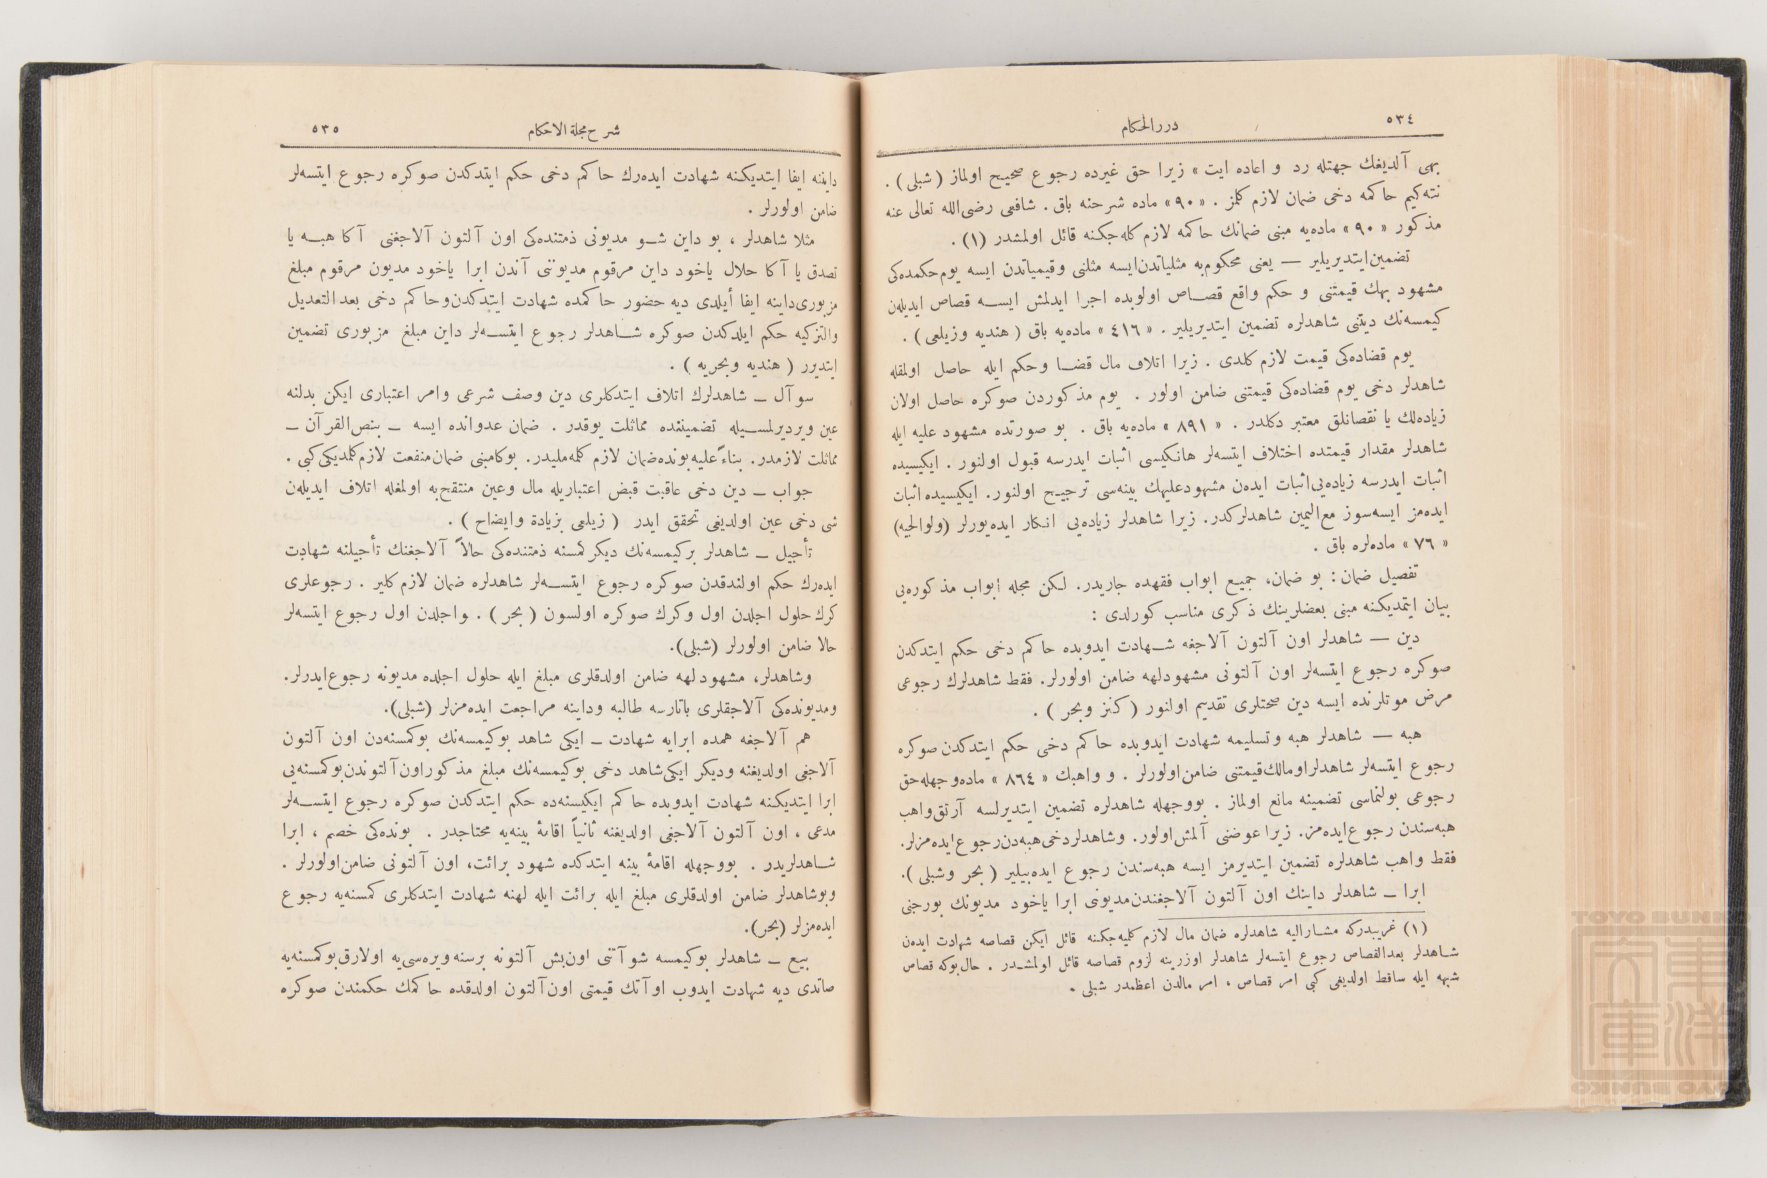 ٥٣٤
دررالحكام
بهى آلديغك جهتله رد و اعاده ايت » زيرا حق غيرده رجوع صحيح اولماز ( شبلى ) .
نته‌كيم حاكمه دخى ضمان لازم كلمز . « ٩٠ » ماده شرحنه باق . شافعى رضى‌الله تعالى عنه
مذكور « ٩٠ » ماده‌يه مبنى ضمانك حاكمه لازم كله‌جكنه قائل اولمشدر (١) .
تضمين‌ايتديريلير — يعنى محكوم‌به مثلياتدن‌ايسه مثلنى وقيمياتدن ايسه يوم‌حكمده‌كى
مشهود بهك قيمتنى و حكم واقع قصاص اولوبده اجرا ايدلمش ايسه قصاص ايديلەن
كيمسه‌نك ديتنى شاهدلره تضمين ايتديريلير . « ٤١٦ » ماده‌يه باق ( هنديه وزيلعى ) .
يوم قضاده‌كى قيمت لازم كلدى . زيرا اتلاف مال قضا وحكم ايله حاصل اولمقله
شاهدلر دخى يوم قضاده‌كى قيمتنى ضامن اولور . يوم مذكوردن صوكره حاصل اولان
زياده‌لك يا نقصانلق معتبر دكلدر . « ٨٩١ » ماده‌يه باق . بو صورتده مشهود عليه ايله
شاهدلر مقدار قيمتده اختلاف ايتسه‌لر هانكيسى اثبات ايدرسه قبول اولنور . ايكيسيده
اثبات ايدرسه زياده‌يى‌اثبات ايدەن مشهودعليهك بينه‌سى ترجيح اولنور. ايكيسيده اثبات
ايده‌مز ايسه‌سوز مع‌اليمين شاهدلركدر. زيرا شاهدلر زياده‌يى انكار ايده‌يورلر (ولوالجيه)
« ٧٦ » ماده‌لره باق .
تفصيل ضمان: بو ضمان، جميع ابواب فقهده جاريدر. لكن مجله ابواب مذكوره‌يى
بيان ايتمديكنه مبنى بعضلرينك ذكرى مناسب كورلدى :
دين — شاهدلر اون آلتون آلاجغه شهادت ايدوبده حاكم دخى حكم ايتدكدن
صوكره رجوع ايتسه‌لر اون آلتونى مشهودلهه ضامن اولورلر. فقط شاهدلرك رجوعى
مرض موتلرنده ايسه دين صحتلرى تقديم اولنور ( كنز وبحر ) .
هبه — شاهدلر هبه وتسليمه شهادت ايدوبده حاكم دخى حكم ايتدكدن صوكره
رجوع ايتسه‌لر شاهدلراومالك‌قيمتنى ضامن‌اولورلر . و واهبك « ٨٦٤ » ماده‌وجهله‌حق
رجوعى بولنماسى تضمينه مانع اولماز . بووجهله شاهدلره تضمين ايتديرلسه آرتق‌واهب
هبه‌سندن رجوع‌ايده‌مز. زيرا عوضنى آلمش‌اولور. وشاهدلردخى‌هبه‌دن‌رجوع‌ايده‌مزلر.
فقط واهب شاهدلره تضمين ايتديرمز ايسه هبه‌سندن رجوع ايده‌بيلير ( بحر وشبلى ).
ابرا — شاهدلر داينك اون آلتون آلاجغندن‌مديونى ابرا ياخود مديونك بورجنى
(١) غريبدركه مشاراليه شاهدلره ضمان مال لازم كليه‌جكنه قائل ايكن قصاصه شهادت ايدەن
شاهدلر بعدالقصاص رجوع ايتسه‌لر شاهدلر اوزرينه لزوم قصاصه قائل اولمشدر . حال‌بوكه قصاص
شبهه ايله ساقط اولديغى كبى امر قصاص ، امر مالدن اعظمدر شبلى .
شرح مجلة الاحكام
٥٣٥
داينه ايفا ايتديكنه شهادت ايده‌رك حاكم دخى حكم ايتدكدن صوكره رجوع ايتسه‌لر
ضامن اولورلر .
مثلا شاهدلر ، بو داين شو مديونى ذمتنده‌كى اون آلتون آلاجغنى آكا هبه يا
تصدق يا آكا حلال ياخود داين مرقوم مديوننى آندن ابرا ياخود مديون مرقوم مبلغ
مزبورى‌داينه ايفا أيلدى ديه حضور حاكمده شهادت ايتدكدن‌وحاكم دخى بعدالتعديل
والتزكيه حكم ايلدكدن صوكره شاهدلر رجوع ايتسه‌لر داين مبلغ مزبورى تضمين
ايتديرر ( هنديه وبحريه ) .
سوآل — شاهدلرك اتلاف ايتدكلرى دين وصف شرعى وامر اعتبارى ايكن بدلنه
عين ويرديرلمسيله تضمينلده مماثلت يوقدر . ضمان عدوانده ايسه — بنص‌القرآن —
مماثلت لازمدر. بناءً‌عليه‌بونده‌ضمان لازم كله‌مليدر. بوكامبنى ضمان‌منفعت لازم‌كلمديكى‌كبى .
جواب — دين دخى عاقبت قبض اعتباريله مال وعين منتفع‌به اولمغله اتلاف ايديلەن
شى دخى عين اولديغى تحقق ايدر ( زيلعى بزيادة وايضاح ) .
تأجيل — شاهدلر بركيمسه‌نك ديكر كمسنه ذمتنده‌كى حالاً آلاجغنك تأجيلنه شهادت
ايده‌رك حكم اولندقدن صوكره رجوع ايتسه‌لر شاهدلره ضمان لازم كلير . رجوعلرى
كرك حلول اجلدن اول وكرك صوكره اولسون ( بحر ) . واجلدن اول رجوع ايتسه‌لر
حالا ضامن اولورلر (شبلى).
وشاهدلر، مشهودلهه ضامن اولدقلرى مبلغ ايله حلول اجلده مديونه رجوع‌ايدرلر.
ومديونده‌كى آلاجقلرى باتارسه طالبه وداينه مراجعت ايده‌مزلر (شبلى).
هم آلاجغه همده ابرايه شهادت — ايكى شاهد بوكيمسه‌نك بوكمسنه‌دن اون آلتون
آلاجغى اولديغنه وديكر ايكى‌شاهد دخى بوكيمسه‌نك مبلغ مذكوراون‌آلتوندن‌بوكمسنه‌يى
ابرا ايتديكنه شهادت ايدوبده حاكم ايكيسنه‌ده حكم ايتدكدن صوكره رجوع ايتسه‌لر
مدعى ، اون آلتون آلاجغى اولديغنه ثانياً اقامهٔ بينه‌يه محتاجدر . بونده‌كى خصم ، ابرا
شاهدلريدر . بووجهله اقامهٔ بينه ايتدكده شهود برائت، اون آلتونى ضامن‌اولورلر .
وبوشاهدلر ضامن اولدقلرى مبلغ ايله برائت ايله لهنه شهادت ايتدكلرى كمسنه‌يه رجوع
ايده‌مزلر (بحر).
بيع — شاهدلر بوكيمسه شو آتنى اون‌بش آلتونه برسنه ويره‌سى‌يه اولارق‌بوكمسنه‌يه
صاتدى ديه شهادت ايدوب او آتك قيمتى اون‌آلتون اولدقده حاكمك حكمندن صوكره
TOYO BUNKO
東洋文庫
TOYO BUNKO